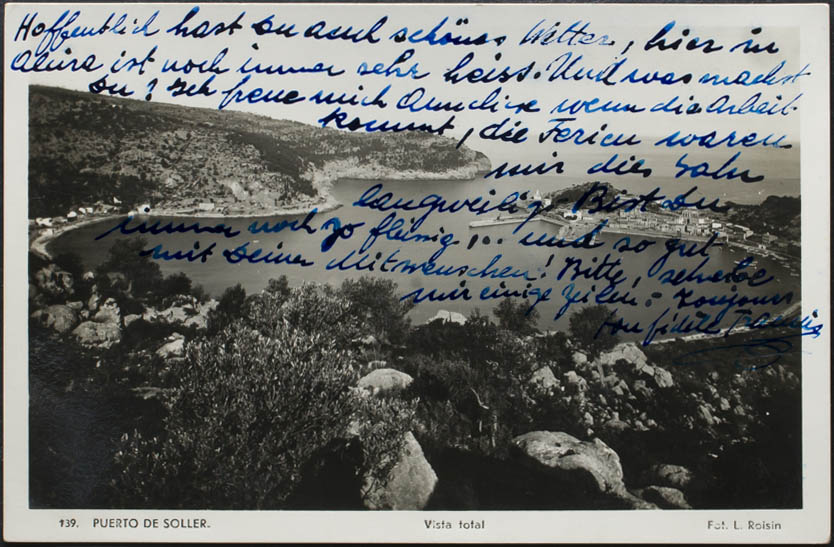 Hoffentlich hast Du auch schönes Wetter, hier in
ist noch immer sehr heiss. Und was machst
Du? Ich freue mich wenn die Arbeit
kommt, die Ferien waren
mir dies Jahr
langweilig. Bist Du
immer noch so fleissig,.. und so gut
mit Deiner Mitmenschen! Bitte, schreibe
mir einige Zeilen. Toujours
ton fidèle Francis
139. PUERTO DE SOLLER.
Vista total
Fot. L. Roisin